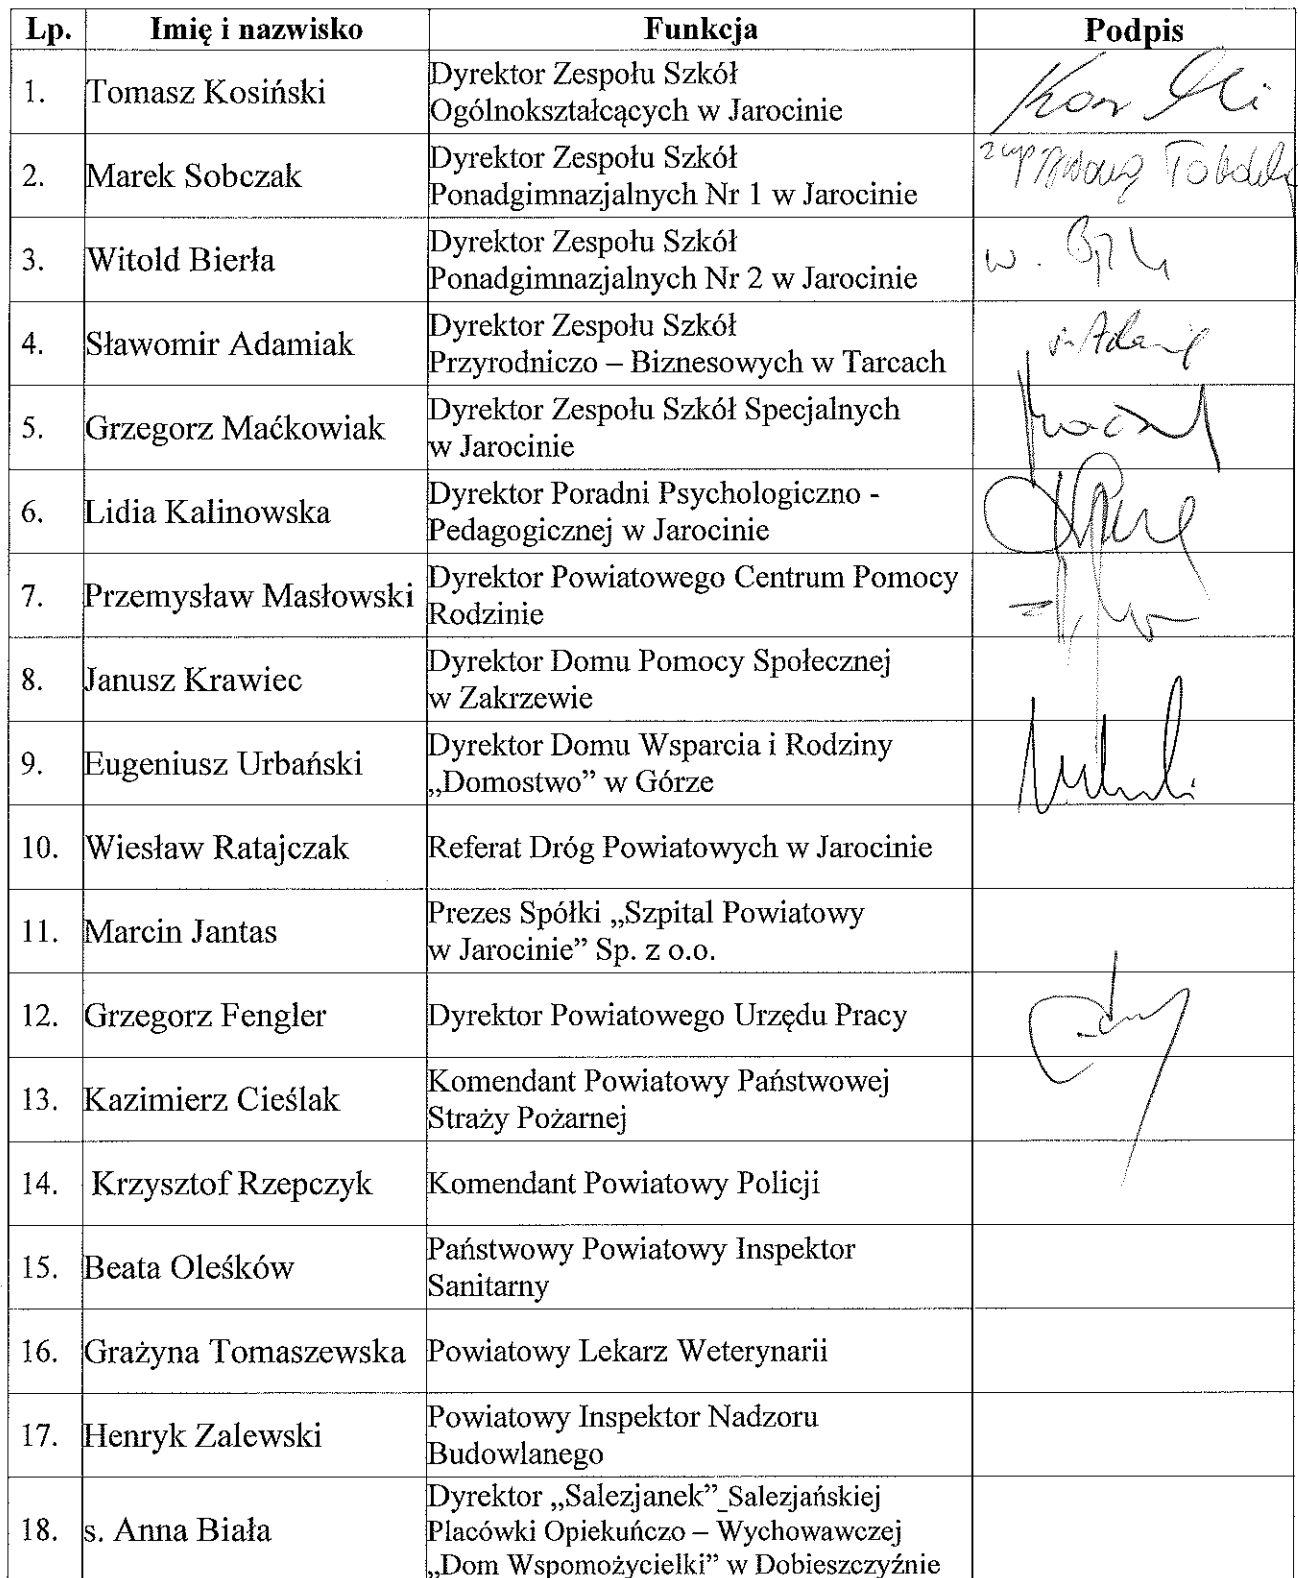 Lp. Imię i nazwisko Funkcja Podpis
1. Tomasz Kosiński Dyrektor Zespołu Szkół
Ogólnokształcących w Jarocinie
2. Marek Sobczak Dyrektor Zespołu Szkół
Ponadgimnazjalnych Nr 1 w Jarocinie
3. Witold Bierła Dyrektor Zespołu Szkół
Ponadgimnazjalnych Nr 2 w Jarocinie
4. Sławomir Adamiak Dyrektor Zespołu Szkół
Przyrodniczo – Biznesowych w Tarcach
5. Grzegorz Maćkowiak Dyrektor Zespołu Szkół Specjalnych
w Jarocinie
6. Lidia Kalinowska Dyrektor Poradni Psychologiczno -
Pedagogicznej w Jarocinie
7. Przemysław Masłowski Dyrektor Powiatowego Centrum Pomocy
Rodzinie
8. Janusz Krawiec Dyrektor Domu Pomocy Społecznej
w Zakrzewie
9. Eugeniusz Urbański Dyrektor Domu Wsparcia i Rodziny
„Domostwo” w Górze
10. Wiesław Ratajczak Referat Dróg Powiatowych w Jarocinie
11. Marcin Jantas Prezes Spółki „Szpital Powiatowy
w Jarocinie” Sp. z o.o.
12. Grzegorz Fengler Dyrektor Powiatowego Urzędu Pracy
13. Kazimierz Cieślak Komendant Powiatowy Państwowej
Straży Pożarnej
14. Krzysztof Rzepczyk Komendant Powiatowy Policji
15. Beata Oleśków Państwowy Powiatowy Inspektor
Sanitarny
16. Grażyna Tomaszewska Powiatowy Lekarz Weterynarii
17. Henryk Zalewski Powiatowy Inspektor Nadzoru
Budowlanego
18. s. Anna Biała Dyrektor „Salezjanek” Salezjańskiej
Placówki Opiekuńczo – Wychowawczej
„Dom Wspomożycielki” w Dobieszczyźnie